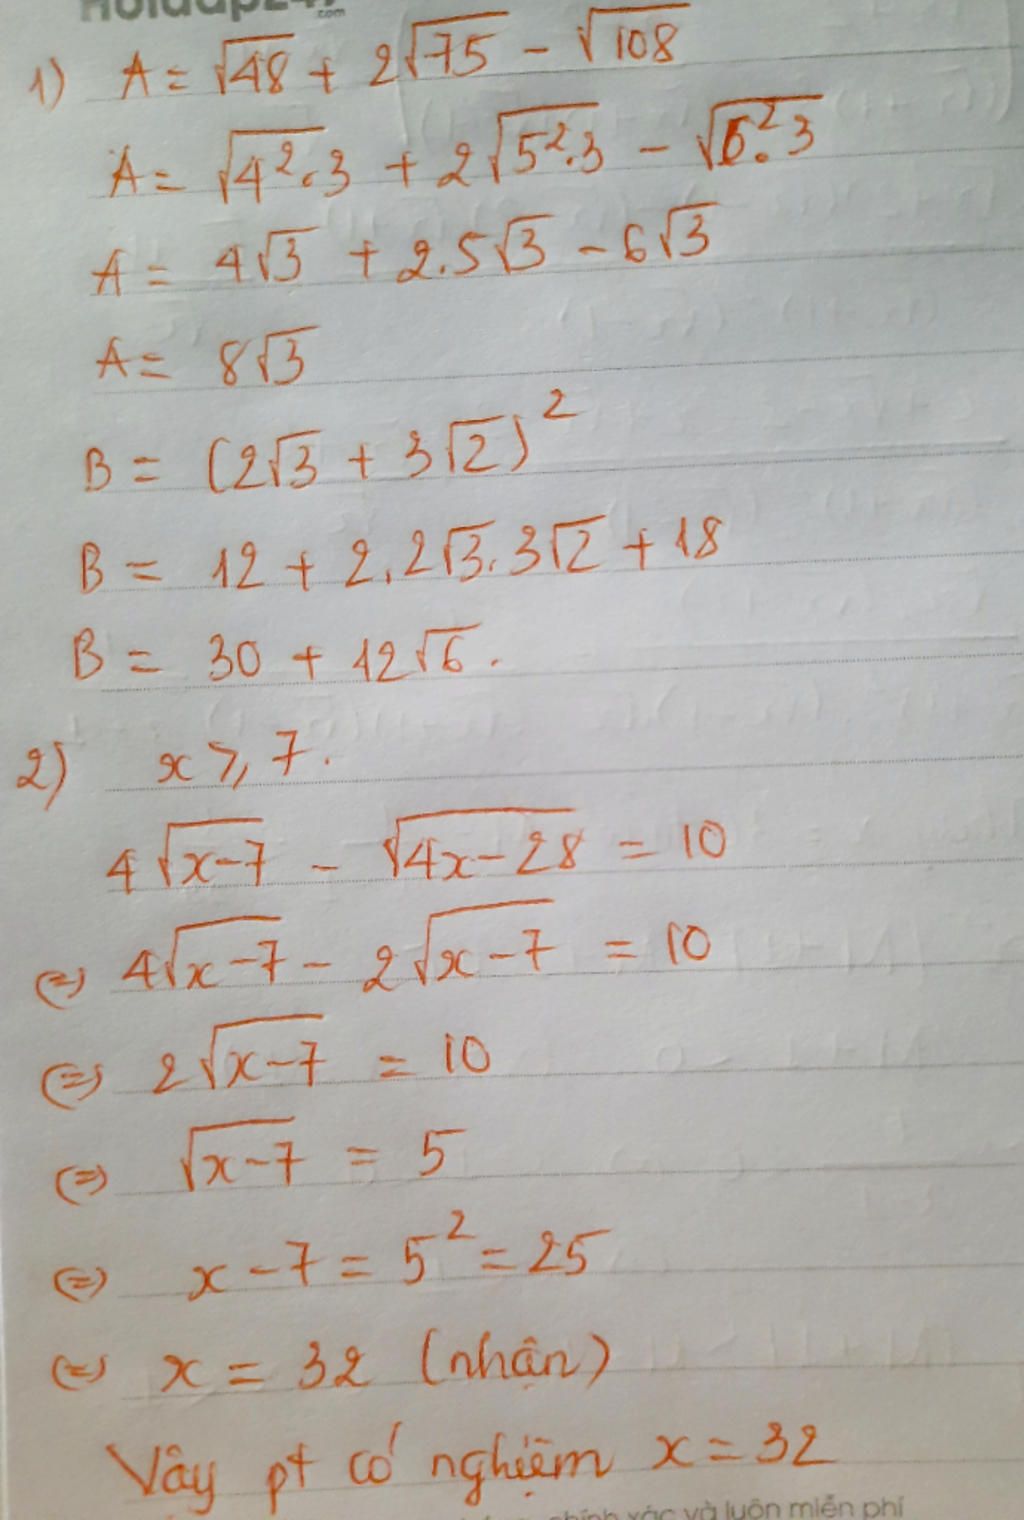 Hoidap247
.com
1) A = √48 + 2√75 - √108
A = √4².3 + 2√5².3 - √6².3
A = 4√3 + 2.5√3 - 6√3
A = 8√3
B = (2√3 + 3√2)²
B = 12 + 2.2√3.3√2 + 18
B = 30 + 12√6.
2) x ⩾ 7.
4√x-7 - √4x-28 = 10
(=) 4√x-7 - 2√x-7 = 10
(=) 2√x-7 = 10
(=) √x-7 = 5
(=) x - 7 = 5² = 25
(=) x = 32 (nhận)
Vậy pt có nghiệm x = 32
chính xác và luôn miễn phí